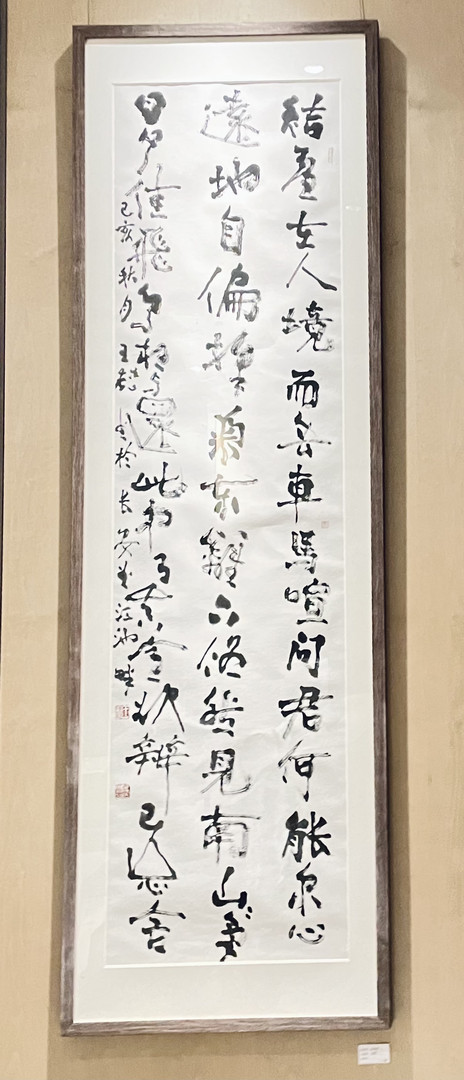 結廬在人境而無車馬喧問君何能尔心
遠地自偏採菊東籬下悠然見南山氣
日夕佳飛鳥相與還此中有真意欲辯已忘言
己亥秋月王書於长安曲江池畔